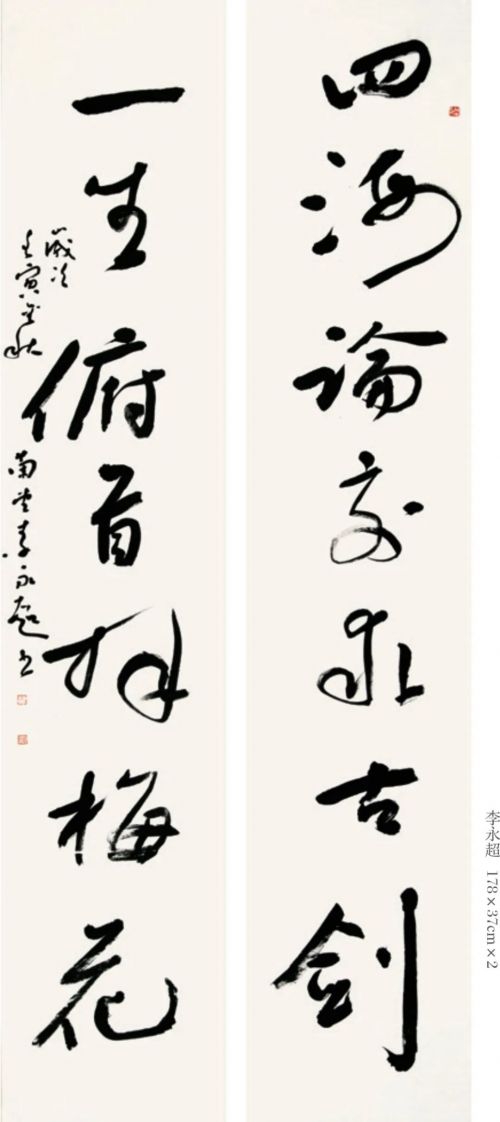 四海論交求古劍
一生俯首拜梅花
歲次
壬寅金秋
南李永超書
李永超 178×37cm×2